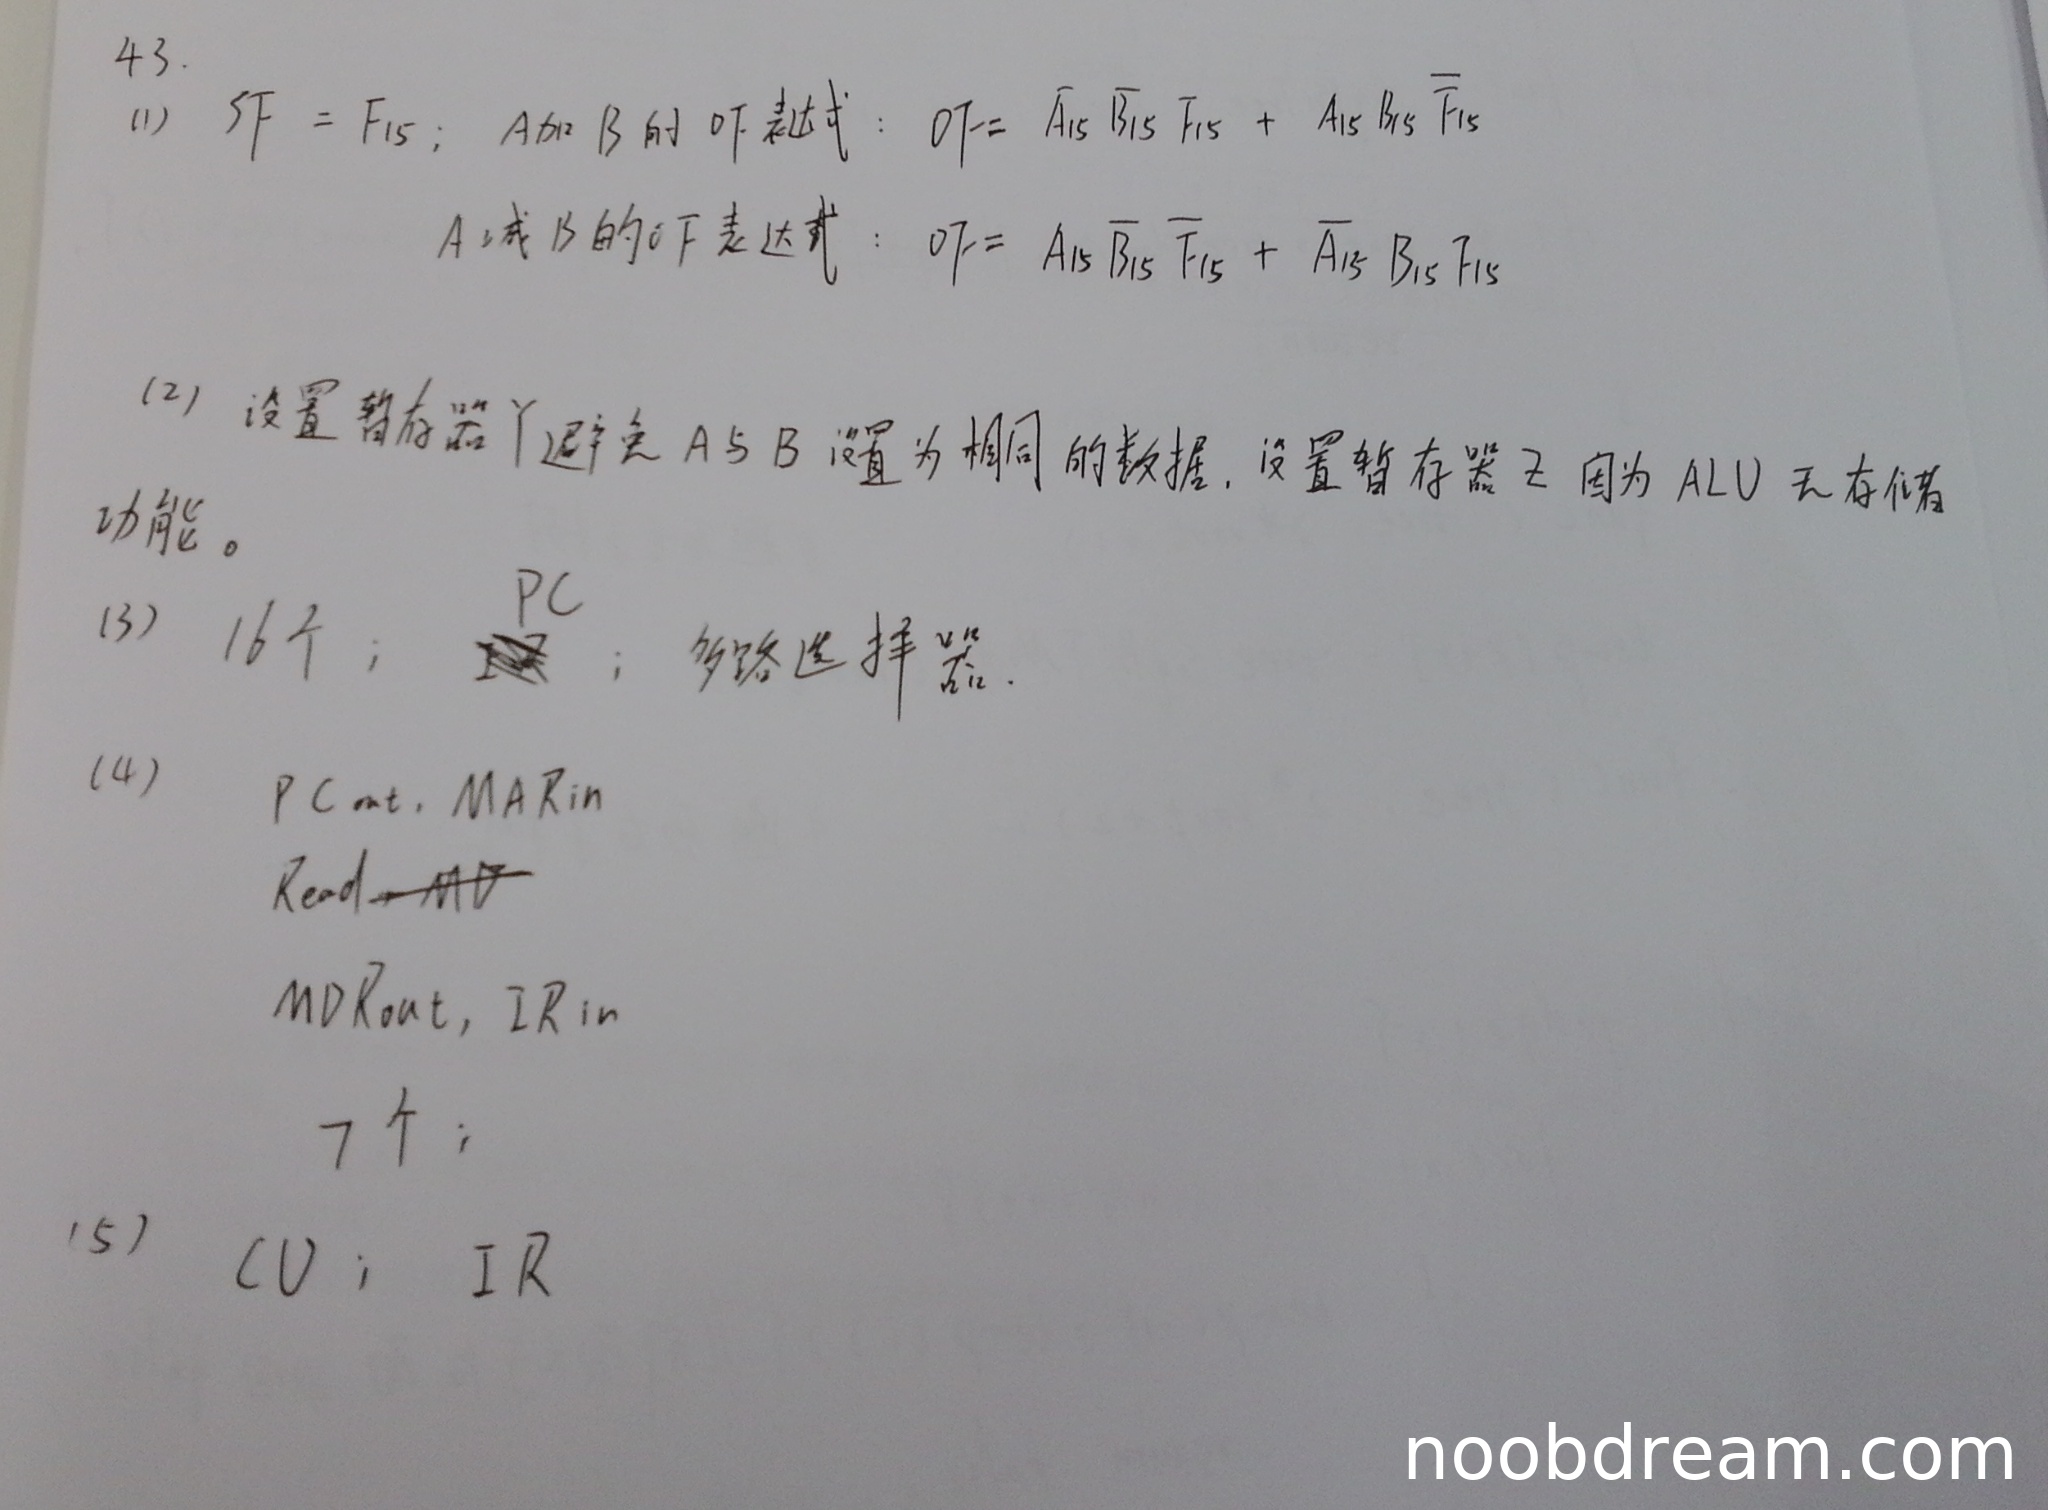 43.
(1) SF = F15; A加B的OF表达式: OF= A̅15 B̅15 F15 + A15 B15 F̅15
A减B的OF表达式: OF= A15 B̅15 F̅15 + A̅15 B15 F15
(2) 设置暂存器Y避免A与B设置为相同的数据, 设置暂存器Z因为ALU无存储
功能。
(3) 16个; PC; 多路选择器.
(4) PCout, MARin
Read
MDRout, IRin
7个;
(5) CU; IR
noobdream.com